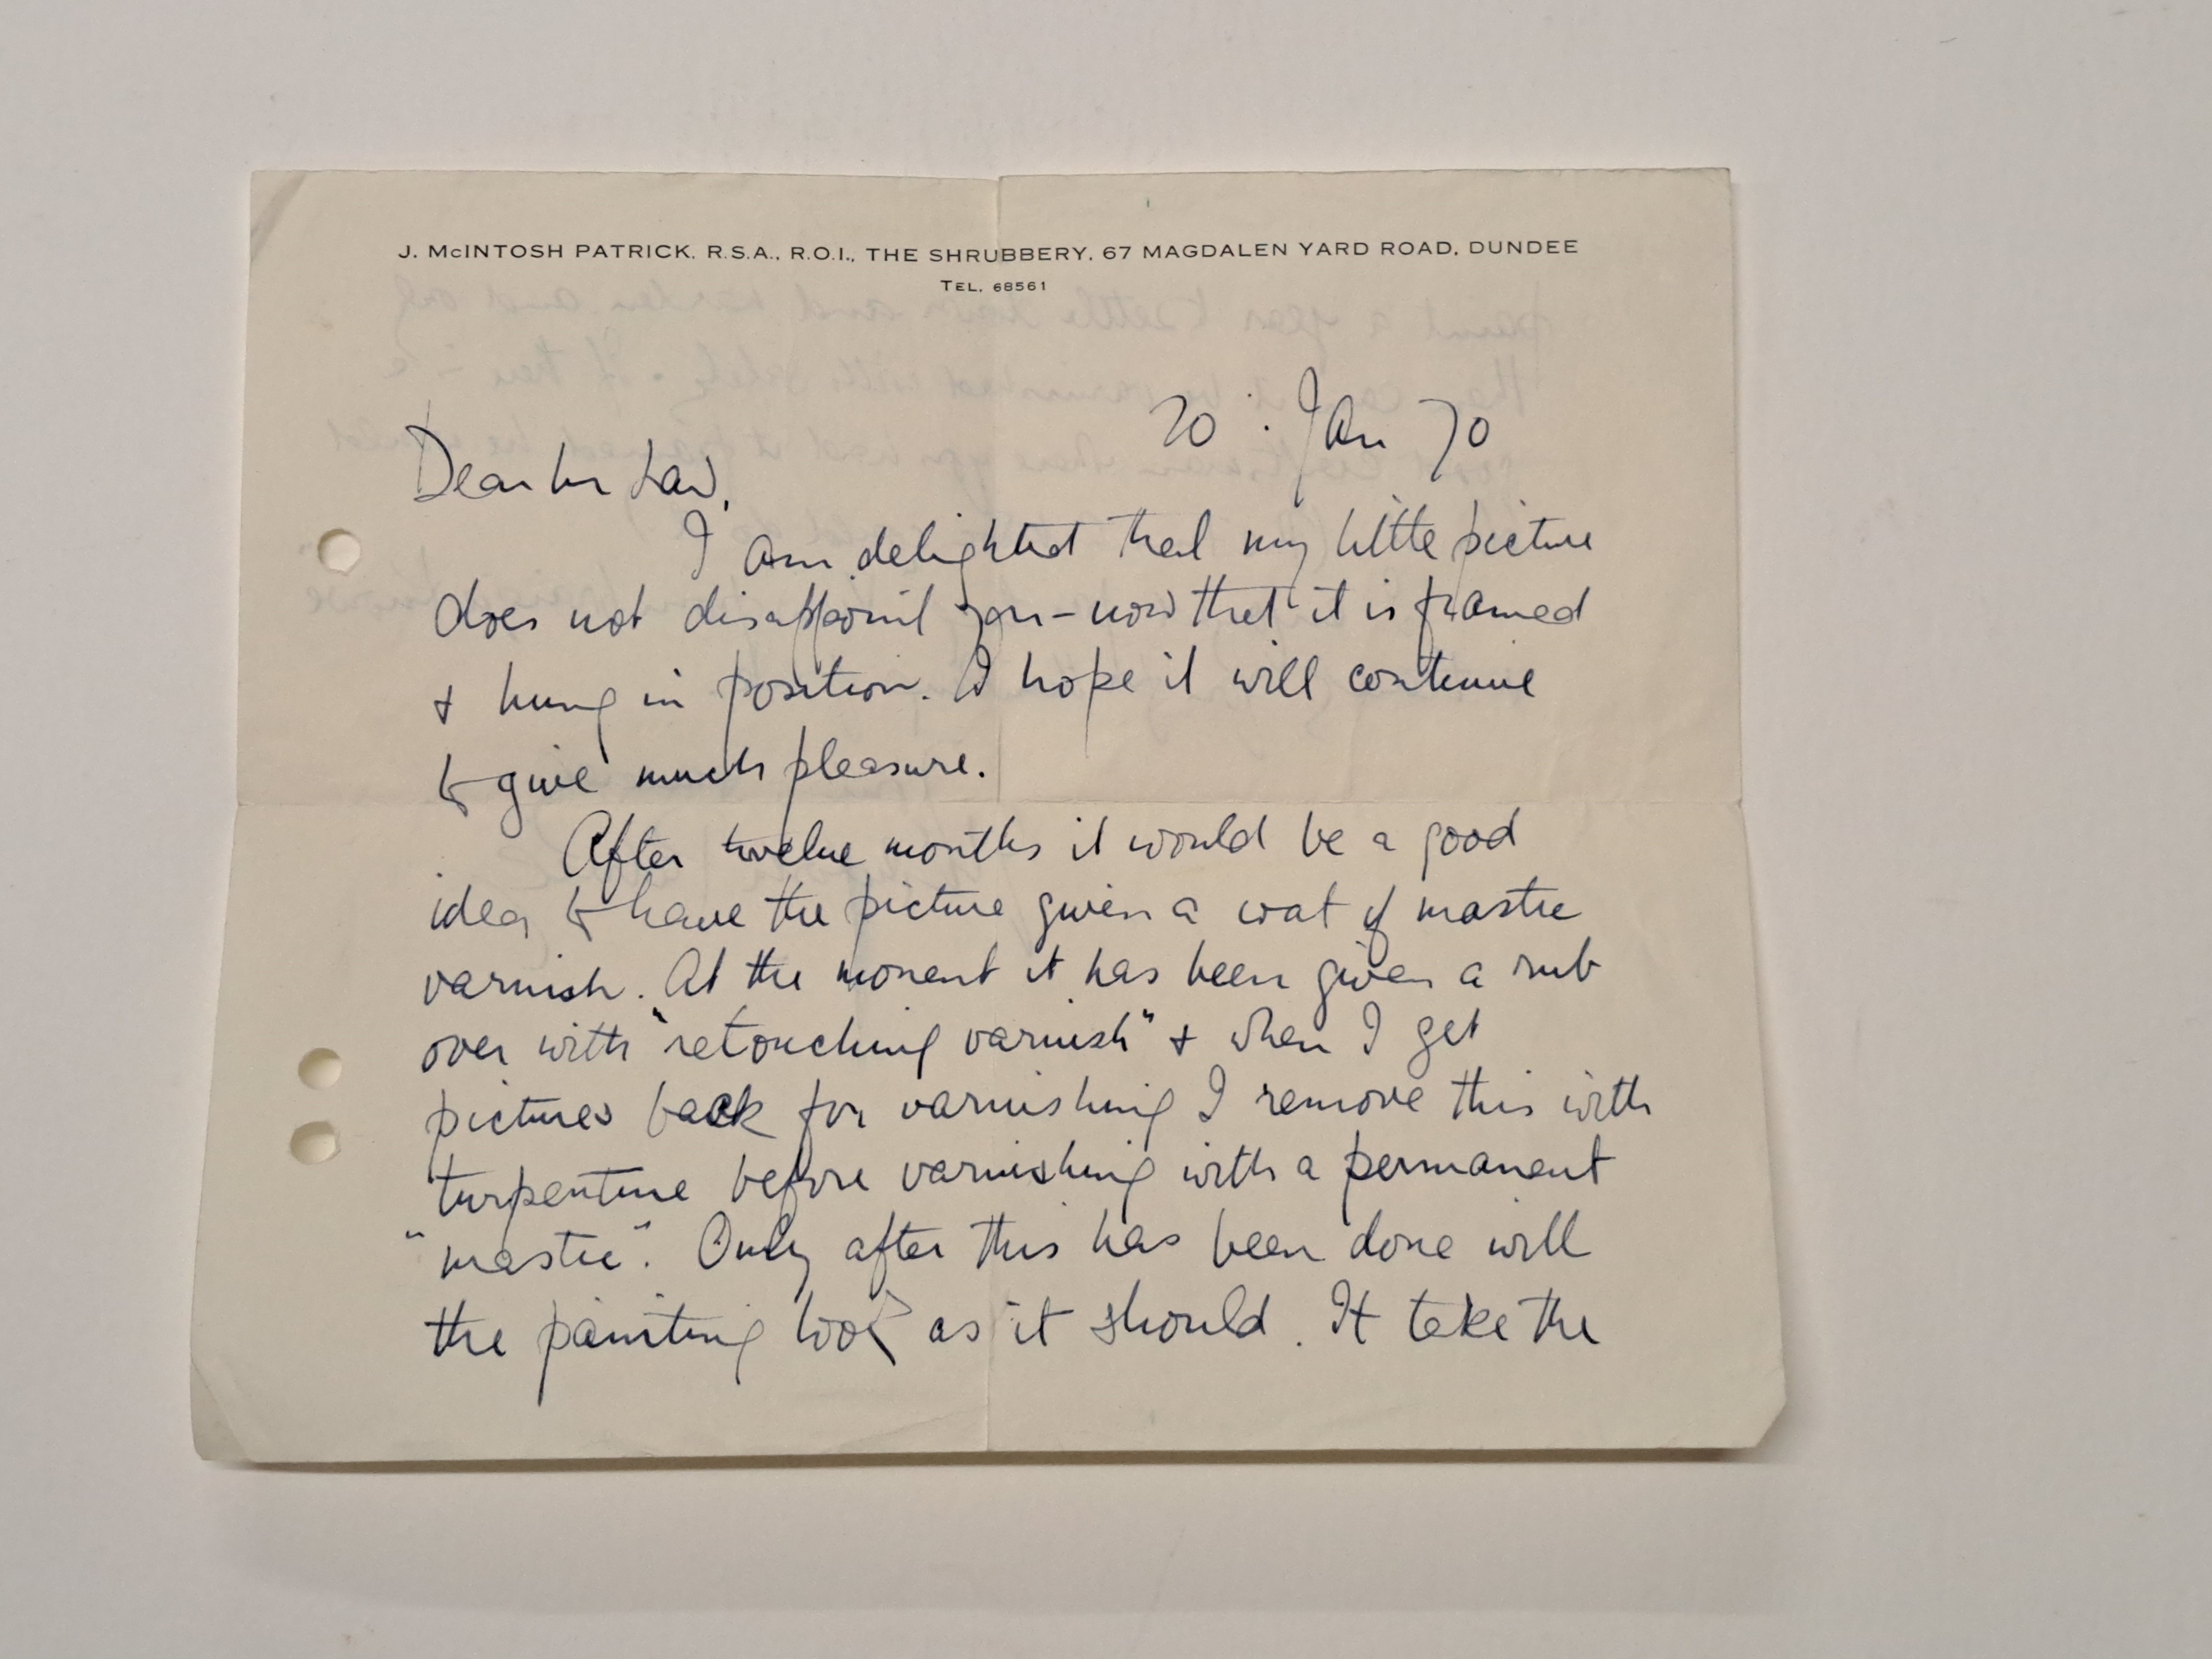 J. McINTOSH PATRICK, R.S.A., R.O.I., THE SHRUBBERY, 67 MAGDALEN YARD ROAD, DUNDEE
TEL. 68561
20 · Jan 70
Dear Mr Law,
I am delighted that my little picture
does not disappoint you – now that it is framed
& hung in position. I hope it will continue
to give much pleasure.
After twelve months it would be a good
idea to have the picture given a coat of mastic
varnish. At the moment it has been given a rub
over with "retouching varnish" & when I get
pictures back for varnishing I remove this with
turpentine before varnishing with a permanent
"mastic". Only after this has been done will
the painting look as it should. It take the